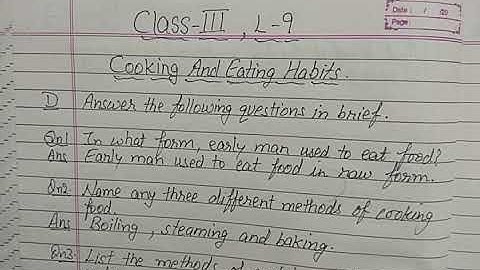 Date: / /20
Page:
Class-III, L-9
Cooking And Eating Habits.
D Answer the following questions in brief.
Qn1. In what form, early man used to eat food?
Ans Early man used to eat food in raw form.
Qn2. Name any three different methods of cooking
food.
Ans Boiling, steaming and baking.
Qn3. List the methods